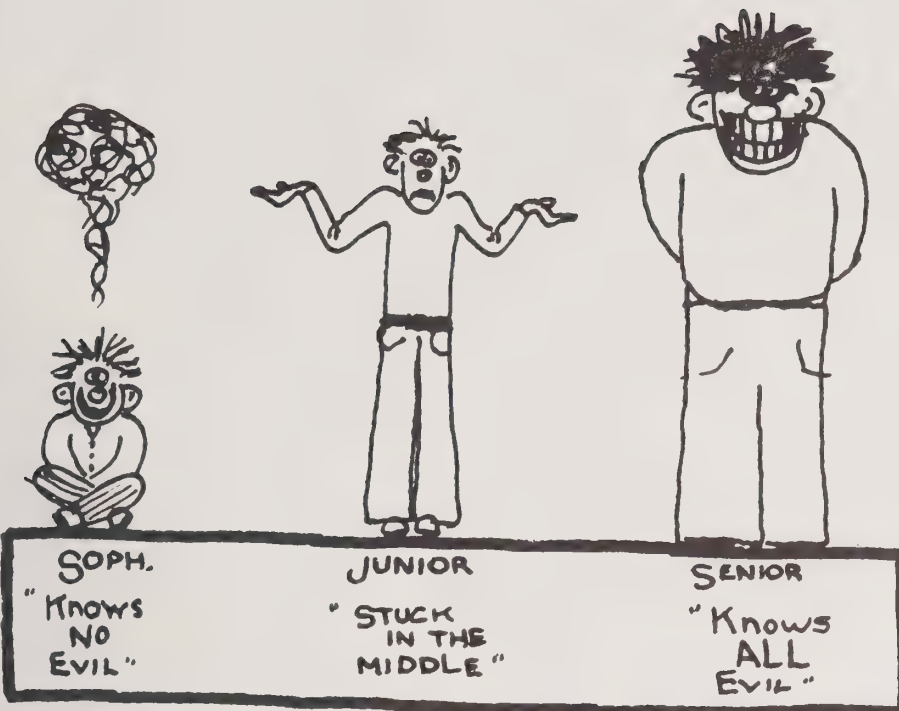 SOPH.
"Knows
NO
EVIL"
JUNIOR
"STUCK
IN THE
MIDDLE"
SENIOR
"Knows
ALL
EVIL"